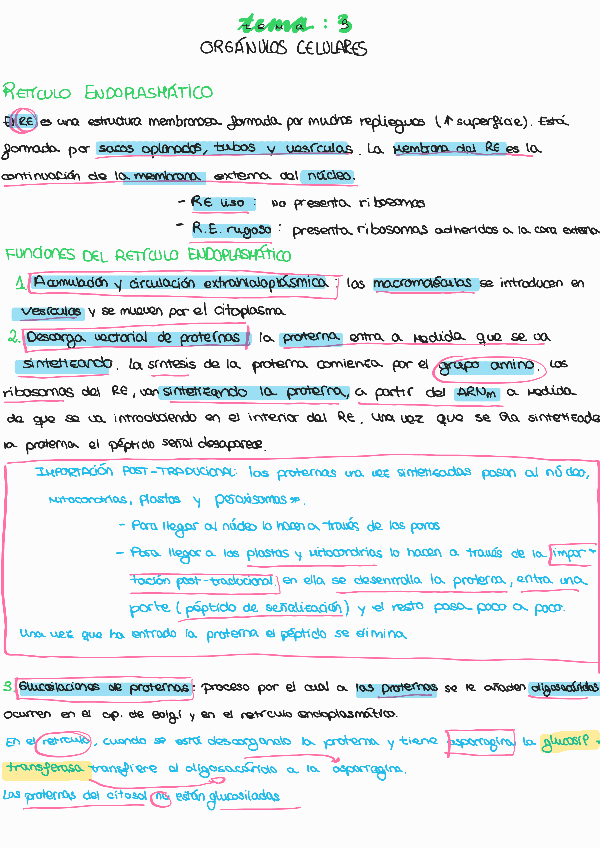 tema: 3
ORGÁNULOS CELULARES
RETÍCULO ENDOPLASMÁTICO
El RE es una estructura membranosa formada por muchos repliegues (↑ superficie). Está
formada por sacos aplanados, tubos y vesículas. La membrana del RE es la
continuación de la membrana externa del núcleo.
- RE liso: no presenta ribosomas
- R.E. rugoso: presenta ribosomas adheridos a la cara externa
FUNCIONES DEL RETÍCULO ENDOPLASMÁTICO
1. Acumulación y circulación extrahialoplásmica: las macromoléculas se introducen en
vesículas y se mueven por el citoplasma
2. Descarga vectorial de proteínas: la proteína entra a medida que se va
sintetizando. La síntesis de la proteína comienza por el grupo amino. Los
ribosomas del RE, van sintetizando la proteína, a partir del ARNm a medida
de que se va introduciendo en el interior del RE. Una vez que se ha sintetizado
la proteína el péptido señal desaparece.
IMPORTACIÓN POST-TRADUCIONAL: las proteínas una vez sintetizadas pasan al núcleo,
mitocondrias, plastos y peroxisomas.
- Para llegar al núcleo lo hacen a través de los poros
- Para llegar a los plastos y mitocondrias lo hacen a través de la impor-
tación post-traducional, en ella se desenrolla la proteína, entra una
parte (péptido de señalización) y el resto pasa poco a poco.
Una vez que ha entrado la proteína el péptido se elimina
3. Glucosilaciones de proteínas: proceso por el cual a las proteínas se le añaden oligosacáridos
ocurren en el ap. de Golgi y en el retículo endoplasmático.
En el retículo, cuando se está descargando la proteína y tiene asparagina la glucosil-
transferasa transfiere al oligosacárido a la asparragina.
Las proteínas del citosol no están glucosiladas